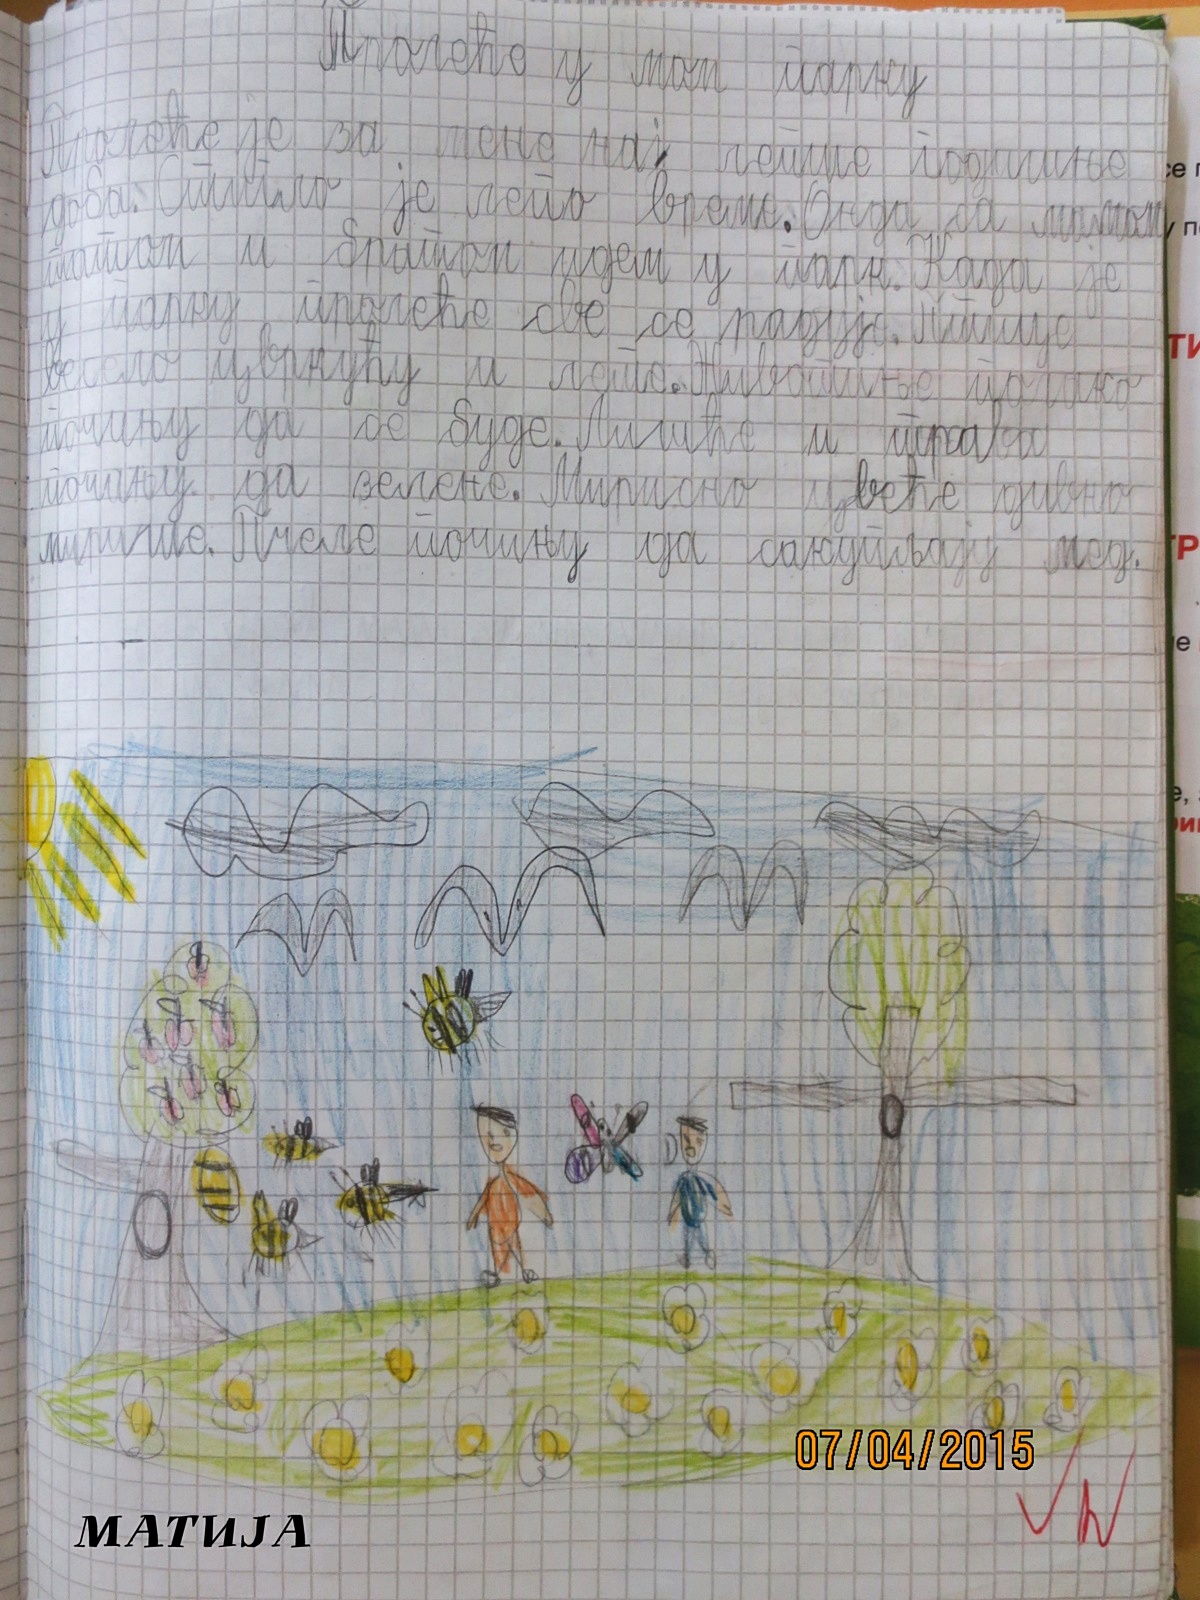 Пролеће у мом парку
Пролеће је за мене нај лепше годишње
доба. Стигло је лепо време. Онда са мамом
татом и братом идем у парк. Када је
у парку пролеће све се радује. Птице
весело цвркућу и лете. Животиње полако
почињу да се буде. Лишће и трава
почињу да зелене. Мирисно цвеће дивно
мирише. Пчеле почињу да сакупљају мед.
07/04/2015
МАТИЈА